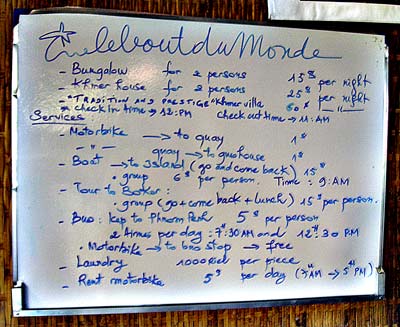 Le bout du Monde
- Bungalow for 2 persons 15$ per night
- Khmer house for 2 persons 25$ per night
- "TRADITION AND PRESTIGE" Khmer villa 60$ - " -
- check in time → 12:PM check out time → 11:AM
Services:
- Motorbike → to quay 1$
- " - quay → to guesthouse 1$
- Boat → to island (go and come back) 15$
• group 6$ per person. Time: 9:AM
- Tour to Bokor:
• group (go + come back + lunch) 15$ per person.
- Bus: kep to Phnom Penh 5$ per person
2 times per day: 7H:30 AM and 12H:30 PM
• Motorbike → to bus stop → free
- Laundry 1000 riel per piece
- Rent motorbike 5$ per day (7H AM → 5H PM)